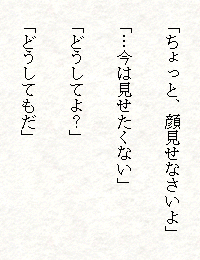 「ちょっと、顔見せなさいよ」
「…今は見せたくない」
「どうしてよ？」
「どうしてもだ」